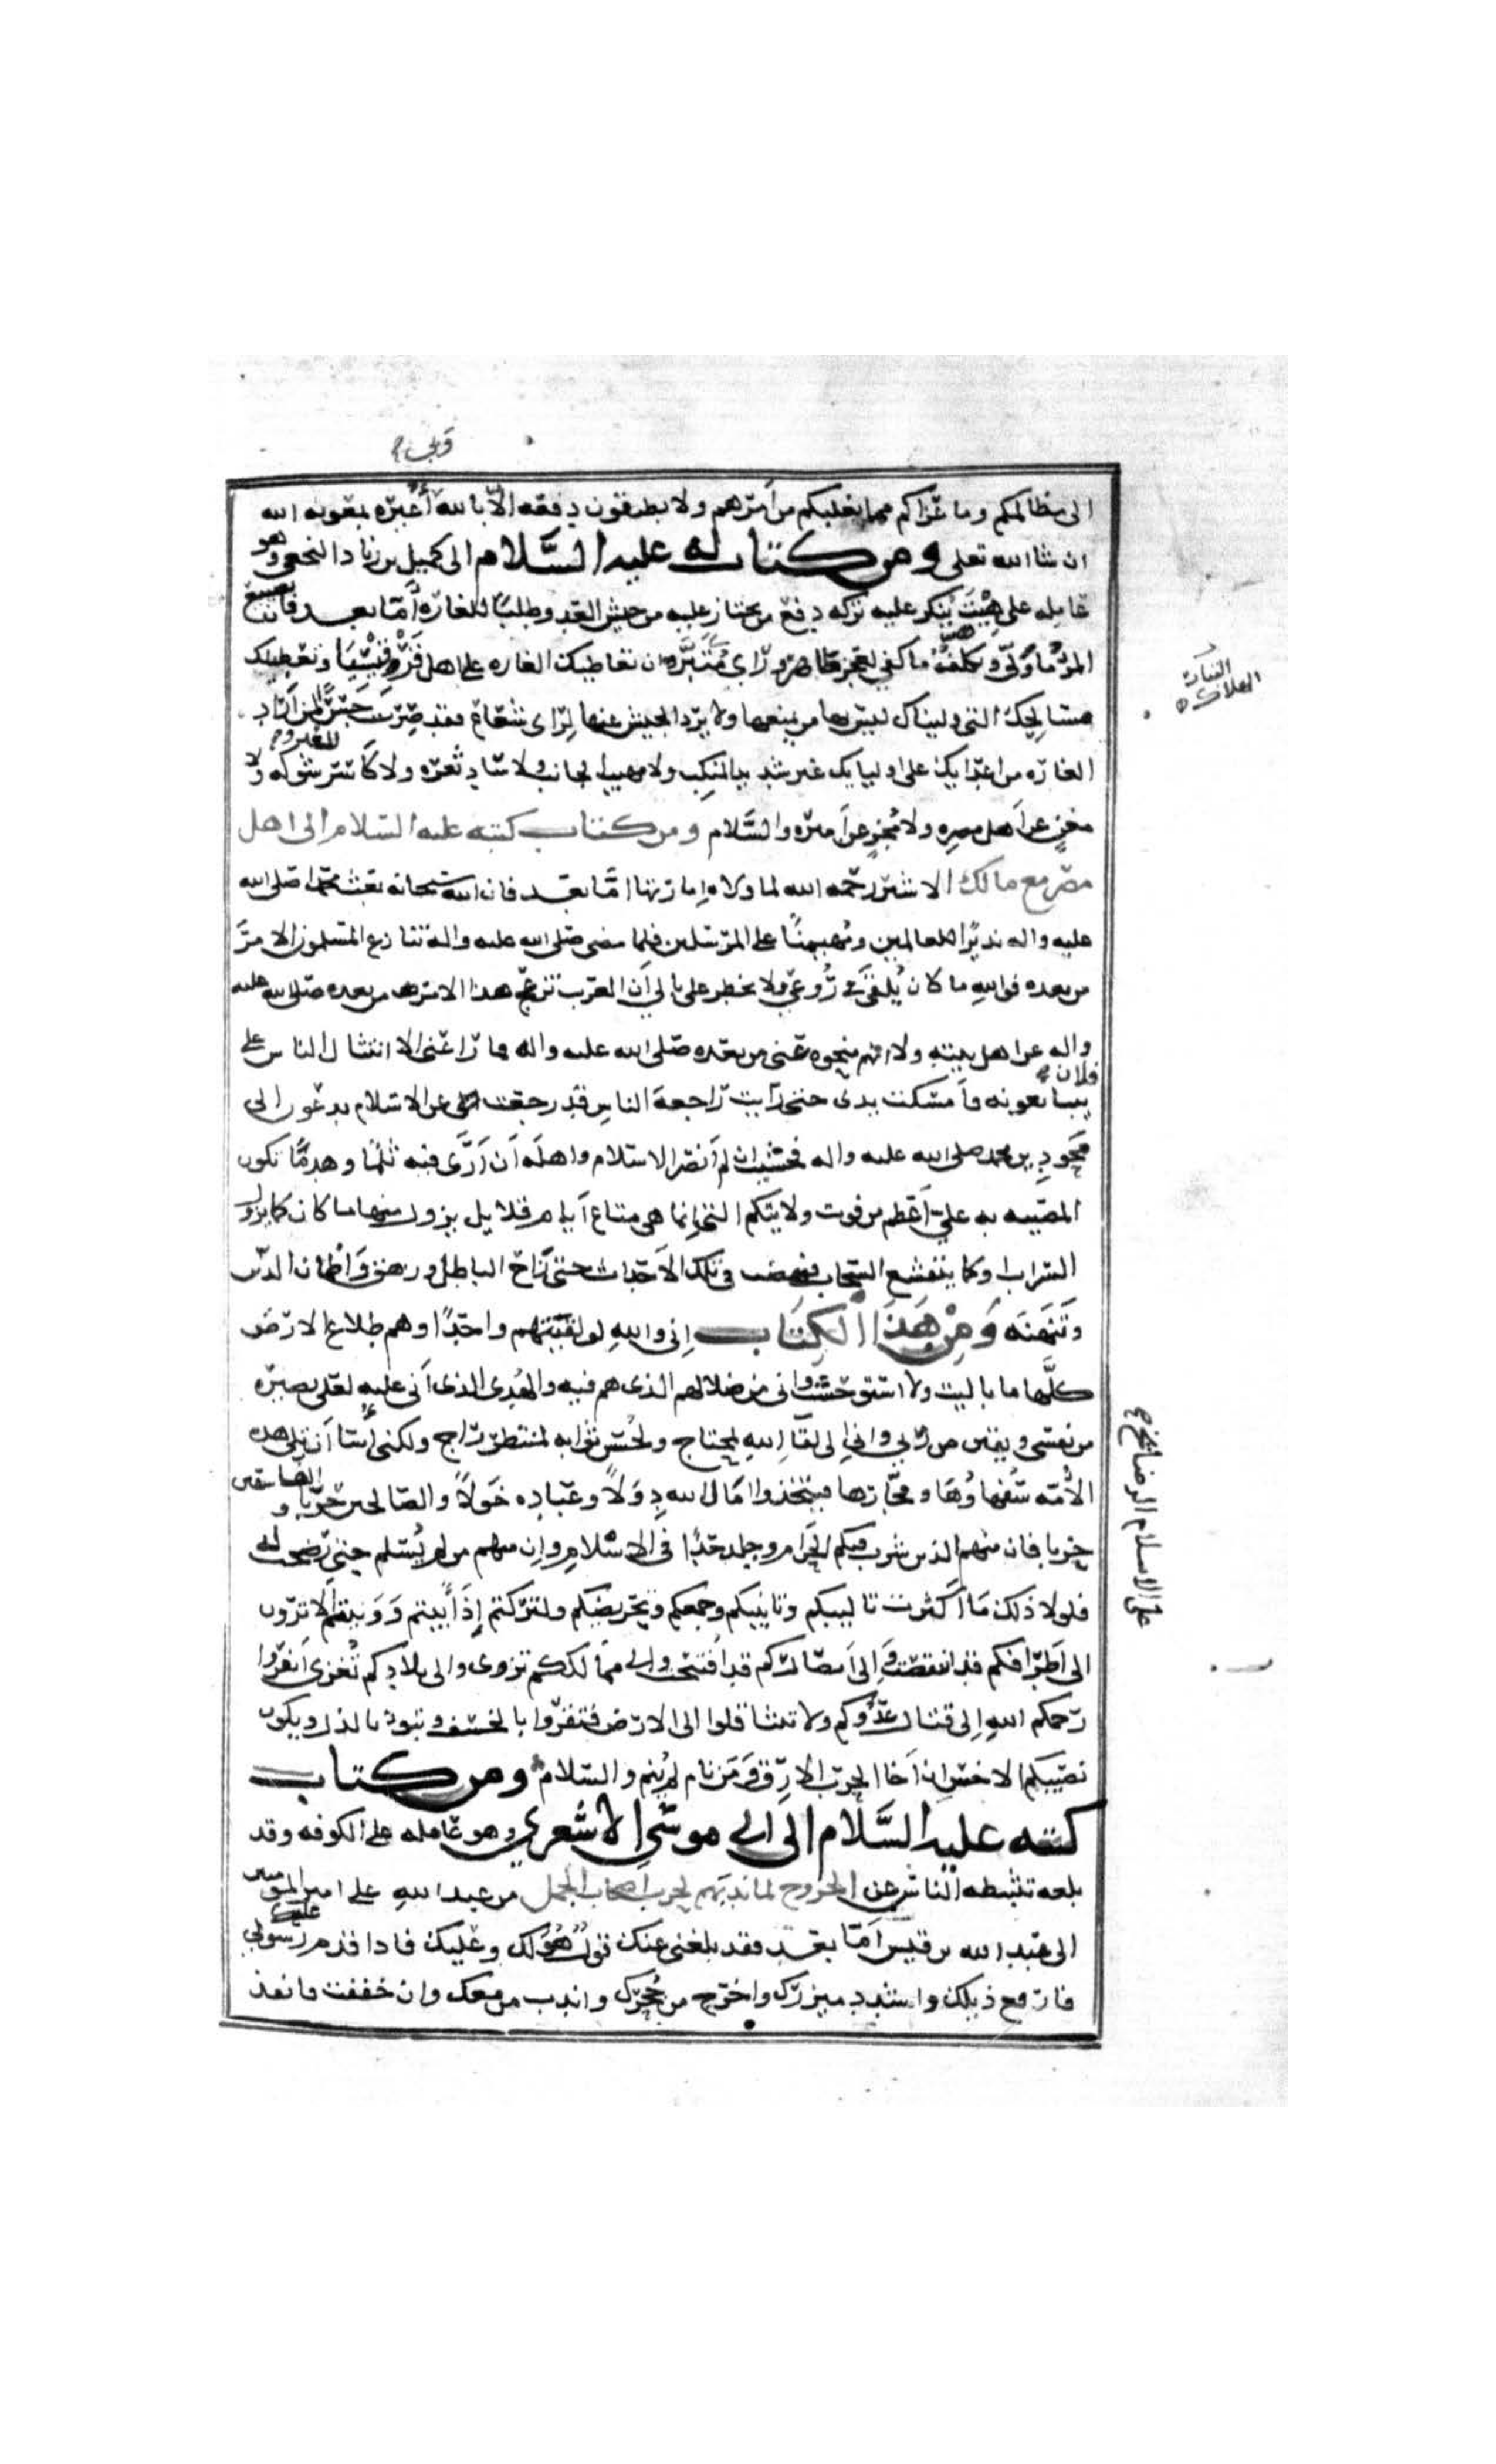 قوبل
الى مظالمكم وما عراكم مما يغلبكم من امرهم ولا تطيقون دفعه الا بالله اغيره بمعونه الله
ان شا الله تعلى ومن كتاب له عليه السلام الى كميل بن زياد النخعي وهو
عامله على هيت ينكر عليه تركه دفع من يجتاز عليه من جيش العدو طلبا للغارة أما بعد فان تضييع
المرء ما ولي وتكلفه ما كفي لعجز حاضر وراي متبر وان تعاطيك الغاره على اهل قرقيسيا وتعطيلك
مسالحك التي وليناك ليس بها من يمنعها ولا يرد الجيش عنها لراى شعاع فقد صرت جسرا لمن اراد
الغاره من اعدايك على اوليايك غير شديد المنكب ولا مهيب الجانب ولا ساد ثغره ولا كاسر شوكه ولا
للعدو
مغن عن اهل مصره ولا مجز عن اميره والسلام ومن كتاب كتبه عليه السلام الى اهل
مصر مع مالك الاشتر رحمه الله لما ولاه امارتها اما بعد فان الله سبحانه بعث محمدا صلى الله
عليه واله نذيرا للعالمين ومهيمنا على المرسلين فلما مضى صلى الله عليه واله تنازع المسلمون الامر
من بعده فوالله ما كان يلقى في روعي ولا يخطر على بالي ان العرب تزعج هذا الامر من بعده صلى الله عليه
واله عن اهل بيته ولا انهم منحوه عني من بعده صلى الله عليه واله فما راعني الا انثيال الناس على
فلان
يبايعونه فامسكت يدى حتى رايت راجعة الناس قد رجعت عن الاسلام يدعون الى
محو دين محمد صلى الله عليه واله فخشيت ان لم أنصر الاسلام واهله أن أرى فيه ثلما وهدما تكون
المصيبه به علي أعظم من فوت ولايتكم التي انما هي متاع أيام قلايل يزول منها ما كان كما يزول
السراب او كما يتقشع السحاب فنهضت في تلك الاحداث حتى زاح الباطل وزهق واطمان الدين
وتنهنه ومن هذا الكتاب اني والله لو لقيتهم واحدا وهم طلاع الارض
كلها ما باليت ولا استوحشت واني من ضلالهم الذى هم فيه والهدى الذى أنا عليه لعلى بصيرة
من نفسي ويقين من ربي واني الى لقاء الله لمحتاج ولحسن ثوابه لمنتظر راج ولكنى أسا أن يلي هذه
الأمه سفهاؤها وفجارها فيتخذوا مال الله دولا وعباده خولا والصالحين حربا والفاسقين
حزبا فان منهم الذى شرب فيكم الحرام وجلد حدا في الاسلام وان منهم من لم يسلم حتى رضخت له
على الاسلام الرضايخ
فلولا ذلك ما اكثرت تاليبكم وتانيبكم وجمعكم وتحريضكم ولتركتكم إذ أبيتم وونيتم ألا ترون
الى أطرافكم قد انتقصت والى أمصاركم قد افتتحت والى ممالككم تزوى والى بلادكم تغزى انفروا
رحمكم الله إلى قتال عدوكم ولا تثاقلوا الى الارض فتقروا بالخسف وتبوءوا بالذل ويكون
نصيبكم الاخس ان أخا الحرب الارق ومن نام لم ينم والسلام ومن كتاب
كتبه عليه السلام الى ابى موسى الاشعري وهو عامله على الكوفه وقد
بلغه تثبيطه الناس عن الخروج لما ندبهم لحرب اصحاب الجمل من عبد الله على امير المومنين
الى عبد الله بن قيس أما بعد فقد بلغني عنك قول هو لك وعليك فاذا قدم رسولي عليك
فارفع ذيلك واشدد ميزرك واخرج من جحرك واندب من معك وان حققت فانفذ